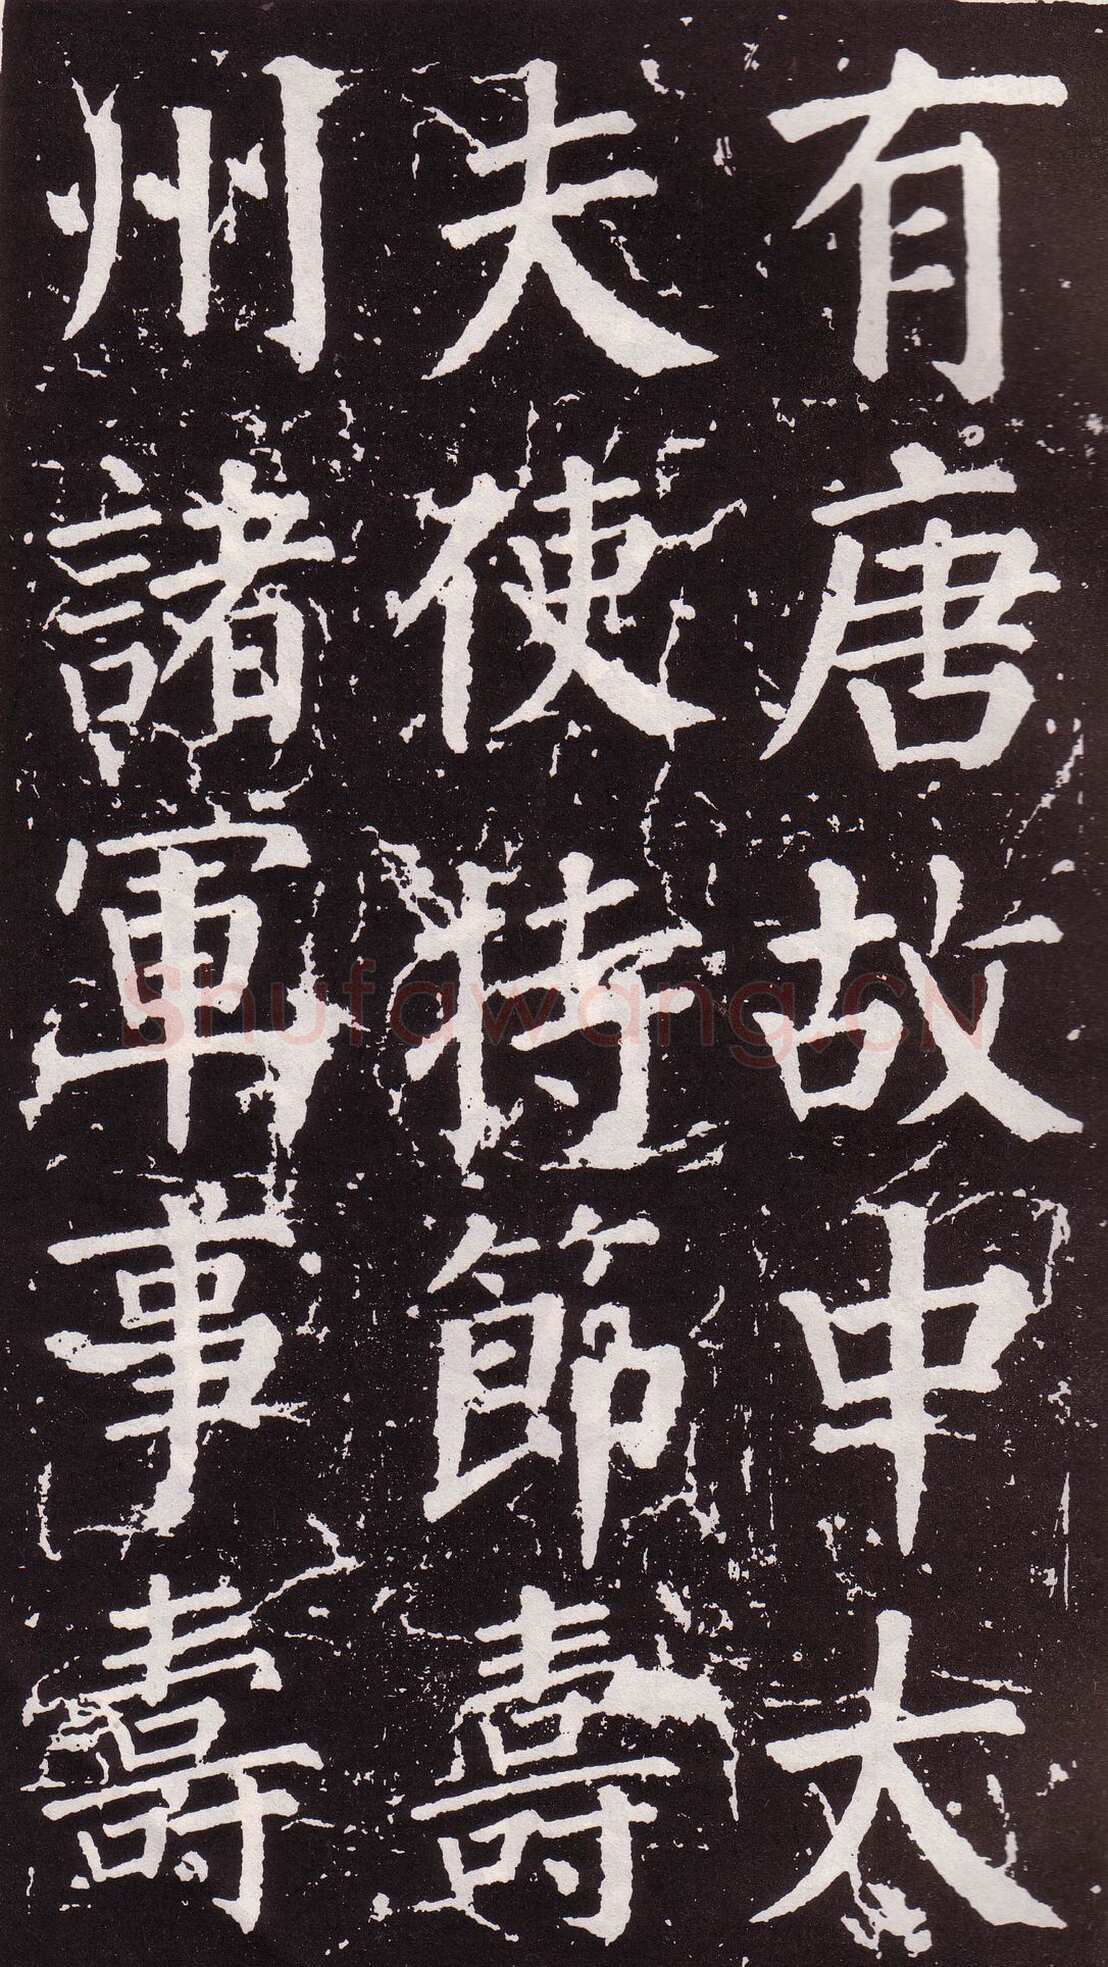 有唐故中大
夫使持節壽
州諸軍事壽
Shufawang.CN